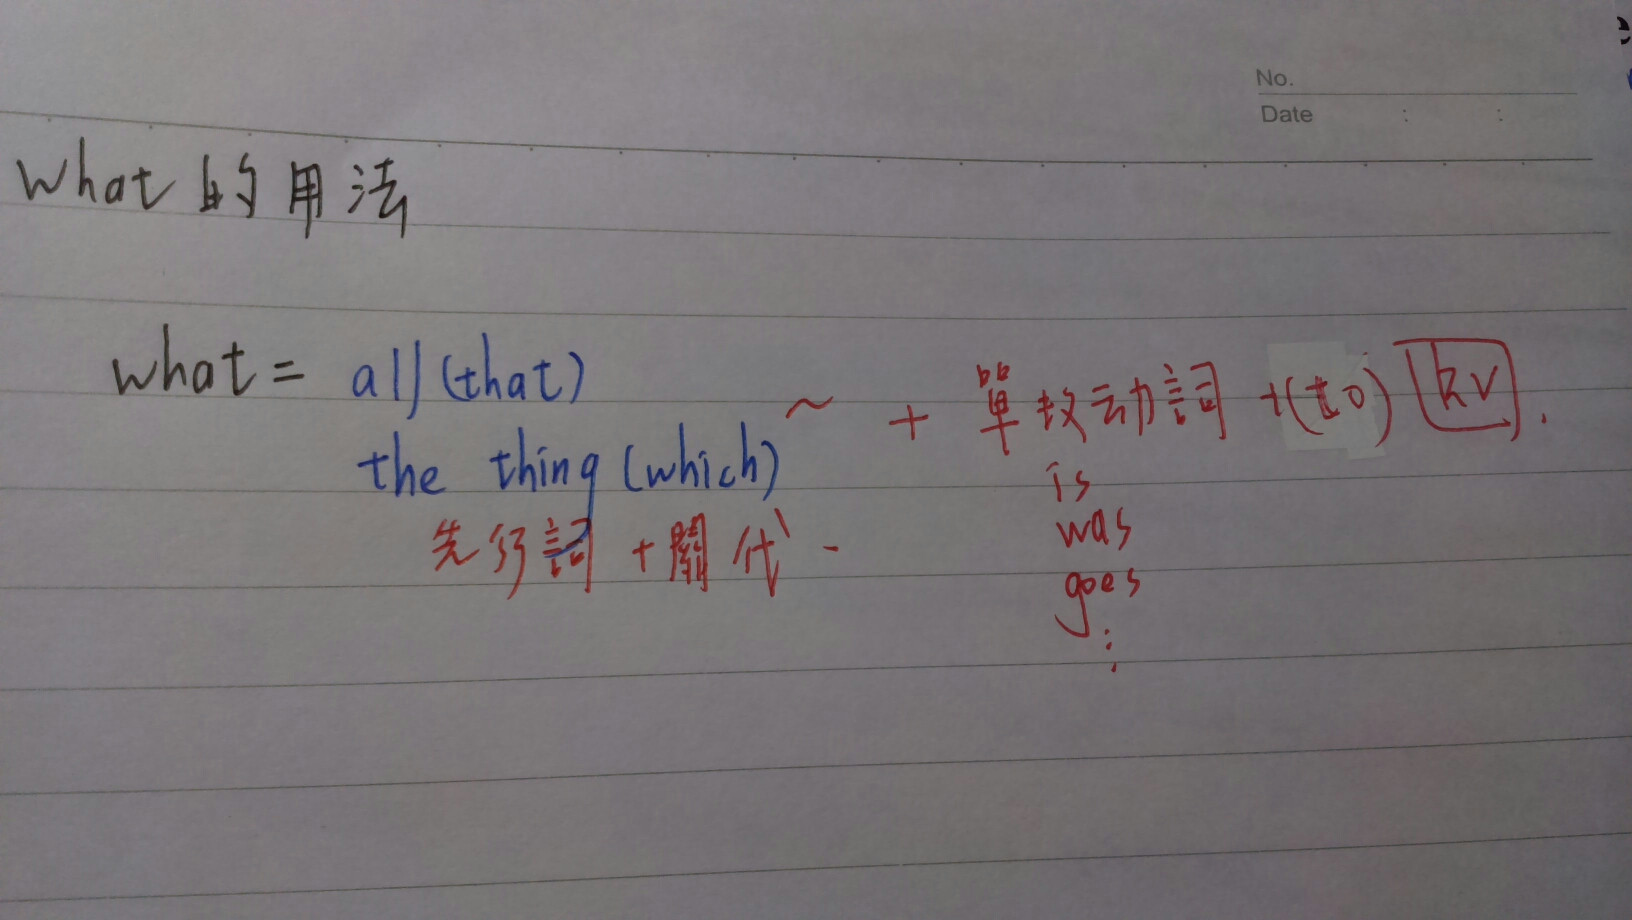 No.
Date : :
what 的用法
what = all (that)
the thing (which) ~ + 單数动詞 + (to) RV.
先行詞 + 關代.
is
was
goes
⋮